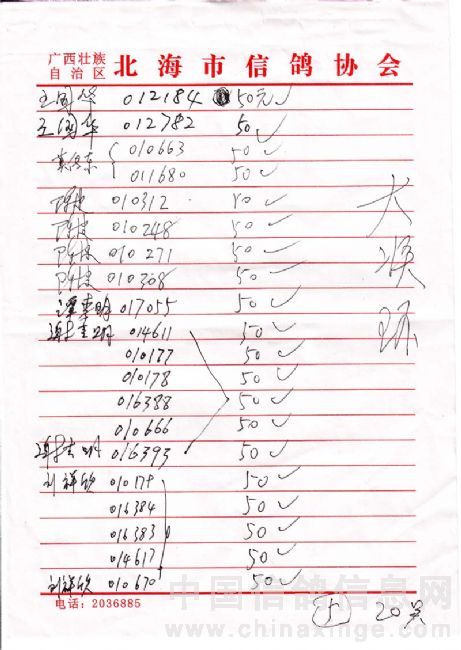 广西壮族
自治区 北海市信鸽协会
王国华 012184 50元✓
王国华 012782 50✓
010663 50✓
011680 50✓
010312 50✓
010248 50✓
010271 50✓
010308 50✓
017055 50✓
014611 50✓
010177 50✓
010178 50✓
016388 50✓
010666 50✓
016393 50✓
刘祥钦 010179 50✓
016384 50✓
016383 50✓
014617 50✓
刘祥钦 010670 50✓
电话:2036885
中国信鸽信息网
www.chinaxinge.com